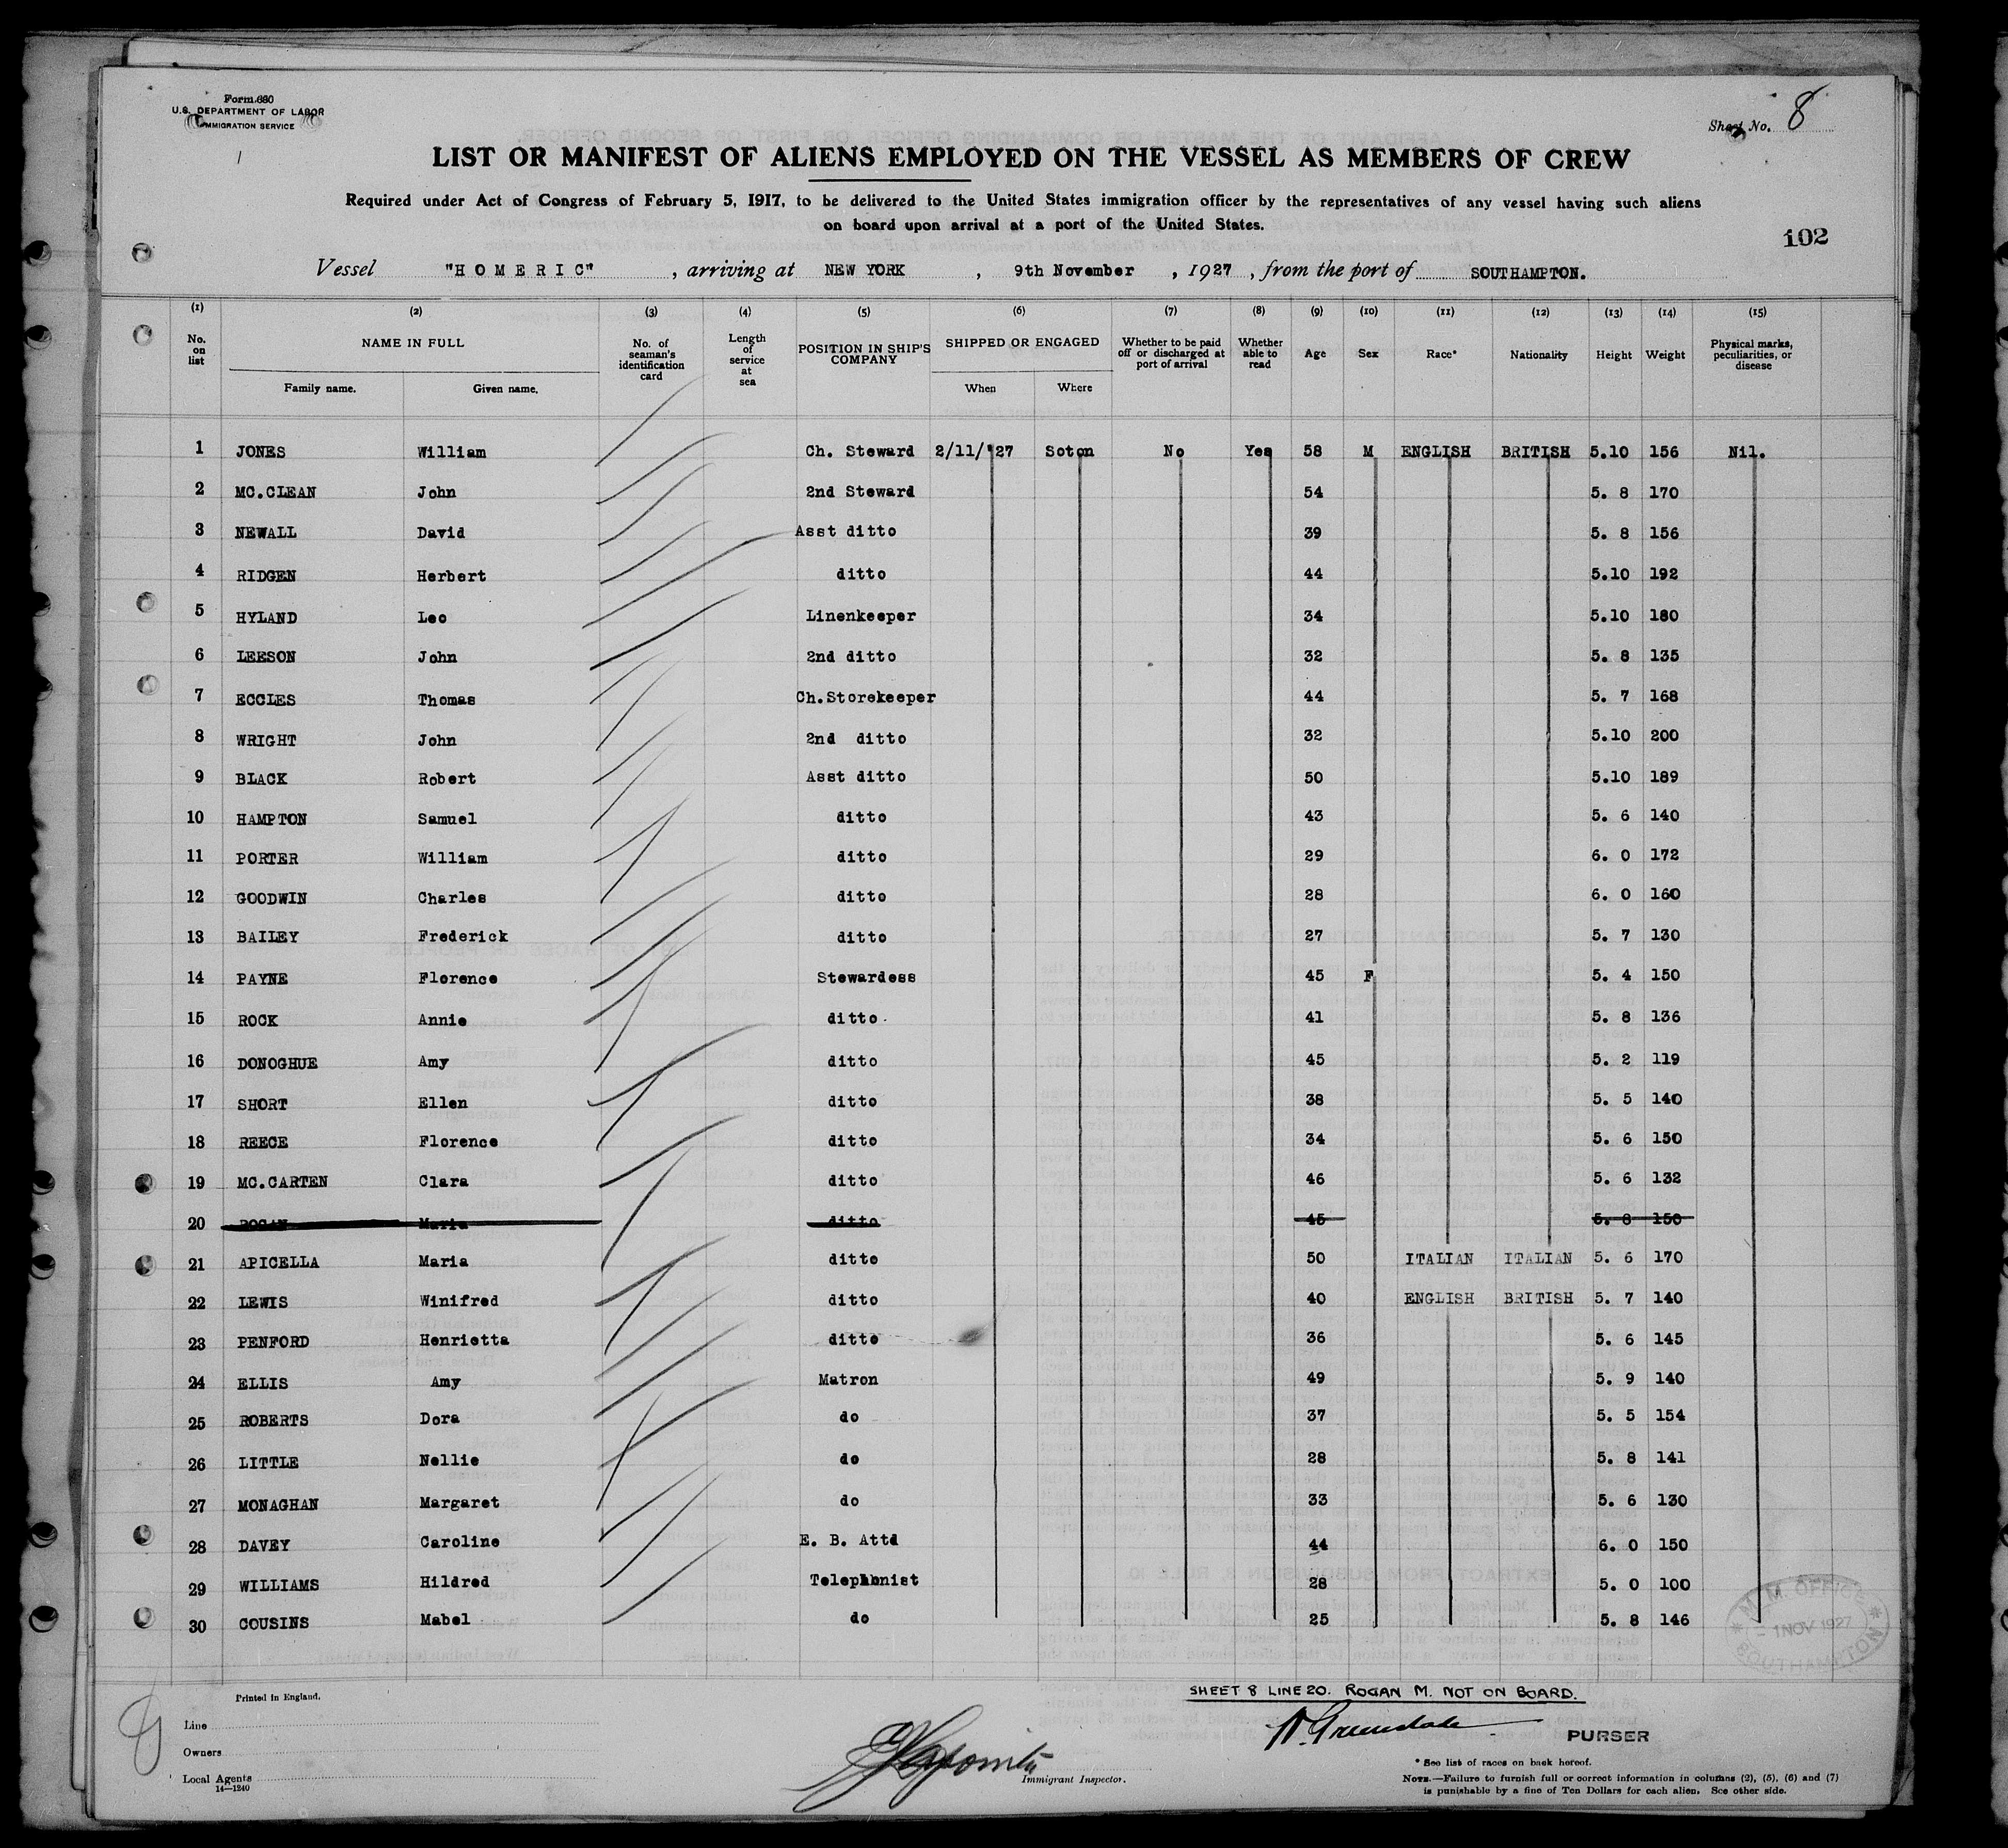 Form 680
U.S. DEPARTMENT OF LABOR
IMMIGRATION SERVICE
Sheet No. 8
LIST OR MANIFEST OF ALIENS EMPLOYED ON THE VESSEL AS MEMBERS OF CREW
Required under Act of Congress of February 5, 1917, to be delivered to the United States immigration officer by the representatives of any vessel having such aliens
on board upon arrival at a port of the United States.
102
Vessel "HOMERIC", arriving at NEW YORK, 9th November, 1927, from the port of SOUTHAMPTON.
(1) (2) (3) (4) (5) (6) (7) (8) (9) (10) (11) (12) (13) (14) (15)
No. on list NAME IN FULL No. of seaman's identification card Length of service at sea POSITION IN SHIP'S COMPANY SHIPPED OR ENGAGED Whether to be paid off or discharged at port of arrival Whether able to read Age Sex Race* Nationality Height Weight Physical marks, peculiarities, or disease
Family name. Given name. When Where
1 JONES William Ch. Steward 2/11/'27 Soton No Yes 58 M ENGLISH BRITISH 5.10 156 Nil.
2 MC.CLEAN John 2nd Steward 54 5. 8 170
3 NEWALL David Asst ditto 39 5. 8 156
4 RIDGEN Herbert ditto 44 5.10 192
5 HYLAND Leo Linenkeeper 34 5.10 180
6 LEESON John 2nd ditto 32 5. 8 135
7 ECCLES Thomas Ch.Storekeeper 44 5. 7 168
8 WRIGHT John 2nd ditto 32 5.10 200
9 BLACK Robert Asst ditto 50 5.10 189
10 HAMPTON Samuel ditto 43 5. 6 140
11 PORTER William ditto 29 6. 0 172
12 GOODWIN Charles ditto 28 6. 0 160
13 BAILEY Frederick ditto 27 5. 7 130
14 PAYNE Florence Stewardess 45 F 5. 4 150
15 ROCK Annie ditto 41 5. 8 136
16 DONOGHUE Amy ditto 45 5. 2 119
17 SHORT Ellen ditto 38 5. 5 140
18 REECE Florence ditto 34 5. 6 150
19 MC.CARTEN Clara ditto 46 5. 6 132
20 ROGAN Maria ditto 45 5. 8 150
21 APICELLA Maria ditto 50 ITALIAN ITALIAN 5. 6 170
22 LEWIS Winifred ditto 40 ENGLISH BRITISH 5. 7 140
23 PENFORD Henrietta ditto 36 5. 6 145
24 ELLIS Amy Matron 49 5. 9 140
25 ROBERTS Dora do 37 5. 5 154
26 LITTLE Nellie do 28 5. 8 141
27 MONAGHAN Margaret do 33 5. 6 130
28 DAVEY Caroline E. B. Attd 44 6. 0 150
29 WILLIAMS Hildred Telephonist 28 5. 0 100
30 COUSINS Mabel do 25 5. 8 146
M. M. OFFICE
1 NOV 1927
SOUTHAMPTON
Printed in England.
SHEET 8 LINE 20. ROGAN M. NOT ON BOARD.
Line
PURSER
Owners
Local Agents
14—1240
Immigrant Inspector.
* See list of races on back hereof.
NOTE.—Failure to furnish full or correct information in columns (2), (5), (6) and (7)
is punishable by a fine of Ten Dollars for each alien. See other side.